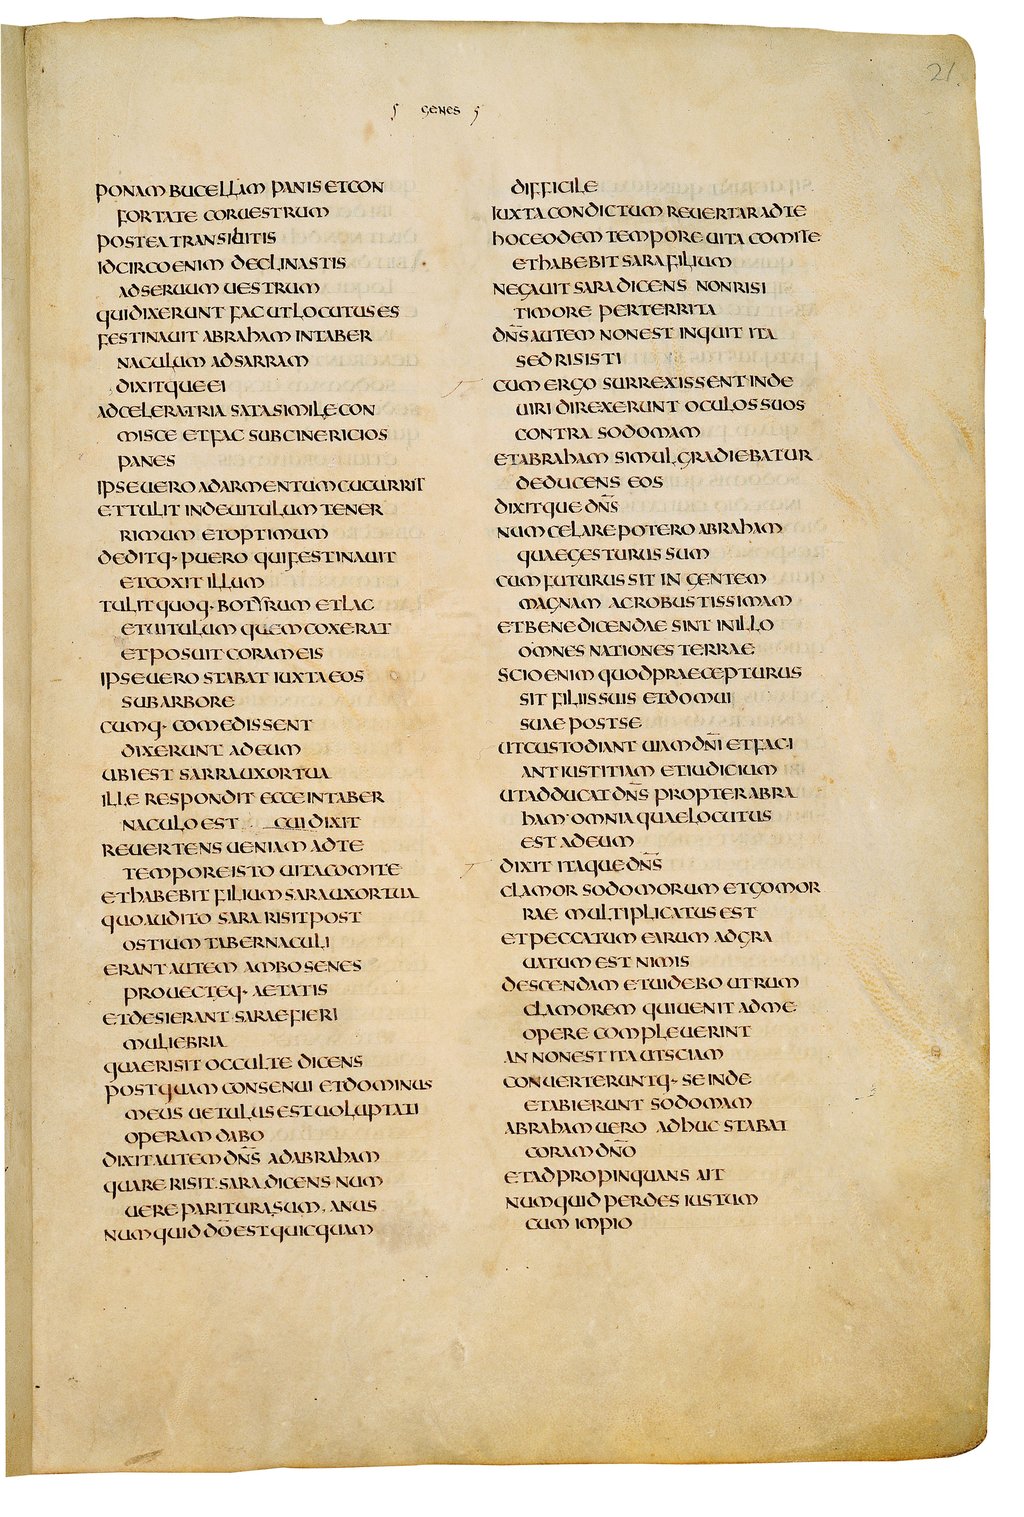 21
GENES
PONAM BUCELLAM PANIS ETCON
FORTATE CORUESTRUM
POSTEA TRANSIBITIS
IDCIRCO ENIM DECLINASTIS
ADSERUUM UESTRUM
QUIDIXERUNT FAC UTLOCUTUS ES
FESTINAUIT ABRAHAM INTABER
NACULUM ADSARRAM
DIXITQUE EI
ADCELERA TRIA SATA SIMILE CON
MISCE ETFAC SUBCINERICIOS
PANES
IPSE UERO ADARMENTUM CUCURRIT
ETTULIT INDE UITULUM TENER
RIMUM ETOPTIMUM
DEDITQ· PUERO QUI FESTINAUIT
ETCOXIT ILLUM
TULIT QUOQ· BOTYRUM ETLAC
ETUITULUM QUEM COXERAT
ETPOSUIT CORAM EIS
IPSE UERO STABAT IUXTA EOS
SUBARBORE
CUMQ· COMEDISSENT
DIXERUNT ADEUM
UBIEST SARRA UXORTUA
ILLE RESPONDIT ECCE INTABER
NACULO EST CUI DIXIT
REUERTENS UENIAM ADTE
TEMPORE ISTO UITA COMITE
ETHABEBIT FILIUM SARA UXORTUA
QUO AUDITO SARA RISIT POST
OSTIUM TABERNACULI
ERANT AUTEM AMBO SENES
PROUECTEQ· AETATIS
ETDESIERANT SARAE FIERI
MULIEBRIA
QUAE RISIT OCCULTE DICENS
POSTQUAM CONSENUI ETDOMINUS
MEUS UETULUS EST UOLUPTATI
OPERAM DABO
DIXIT AUTEM DN̅S ADABRAHAM
QUARE RISIT SARA DICENS NUM
UERE PARITURA SUM ANUS
NUMQUID DO̅ EST QUICQUAM
DIFFICILE
IUXTA CONDICTUM REUERTAR ADTE
HOC EODEM TEMPORE UITA COMITE
ETHABEBIT SARA FILIUM
NEGAUIT SARA DICENS NON RISI
TIMORE PERTERRITA
DN̅S AUTEM NONEST INQUIT ITA
SED RISISTI
CUM ERGO SURREXISSENT INDE
UIRI DIREXERUNT OCULOS SUOS
CONTRA SODOMAM
ETABRAHAM SIMUL GRADIEBATUR
DEDUCENS EOS
DIXITQUE DN̅S
NUM CELARE POTERO ABRAHAM
QUAE GESTURUS SUM
CUM FUTURUS SIT IN GENTEM
MAGNAM AC ROBUSTISSIMAM
ETBENEDICENDAE SINT INILLO
OMNES NATIONES TERRAE
SCIO ENIM QUOD PRAECEPTURUS
SIT FILIIS SUIS ETDOMUI
SUAE POST SE
UTCUSTODIANT UIAM DN̅I ETFACI
ANT IUSTITIAM ETIUDICIUM
UTADDUCAT DN̅S PROPTER ABRA
HAM OMNIA QUAE LOCUTUS
EST ADEUM
DIXIT ITAQUE DN̅S
CLAMOR SODOMORUM ETGOMOR
RAE MULTIPLICATUS EST
ETPECCATUM EARUM ADGRA
UATUM EST NIMIS
DESCENDAM ETUIDEBO UTRUM
CLAMOREM QUI UENIT ADME
OPERE COMPLEUERINT
AN NONEST ITA UTSCIAM
CONUERTERUNTQ· SE INDE
ETABIERUNT SODOMAM
ABRAHAM UERO ADHUC STABAT
CORAM DN̅O
ETADPROPINQUANS AIT
NUMQUID PERDES IUSTUM
CUM IMPIO